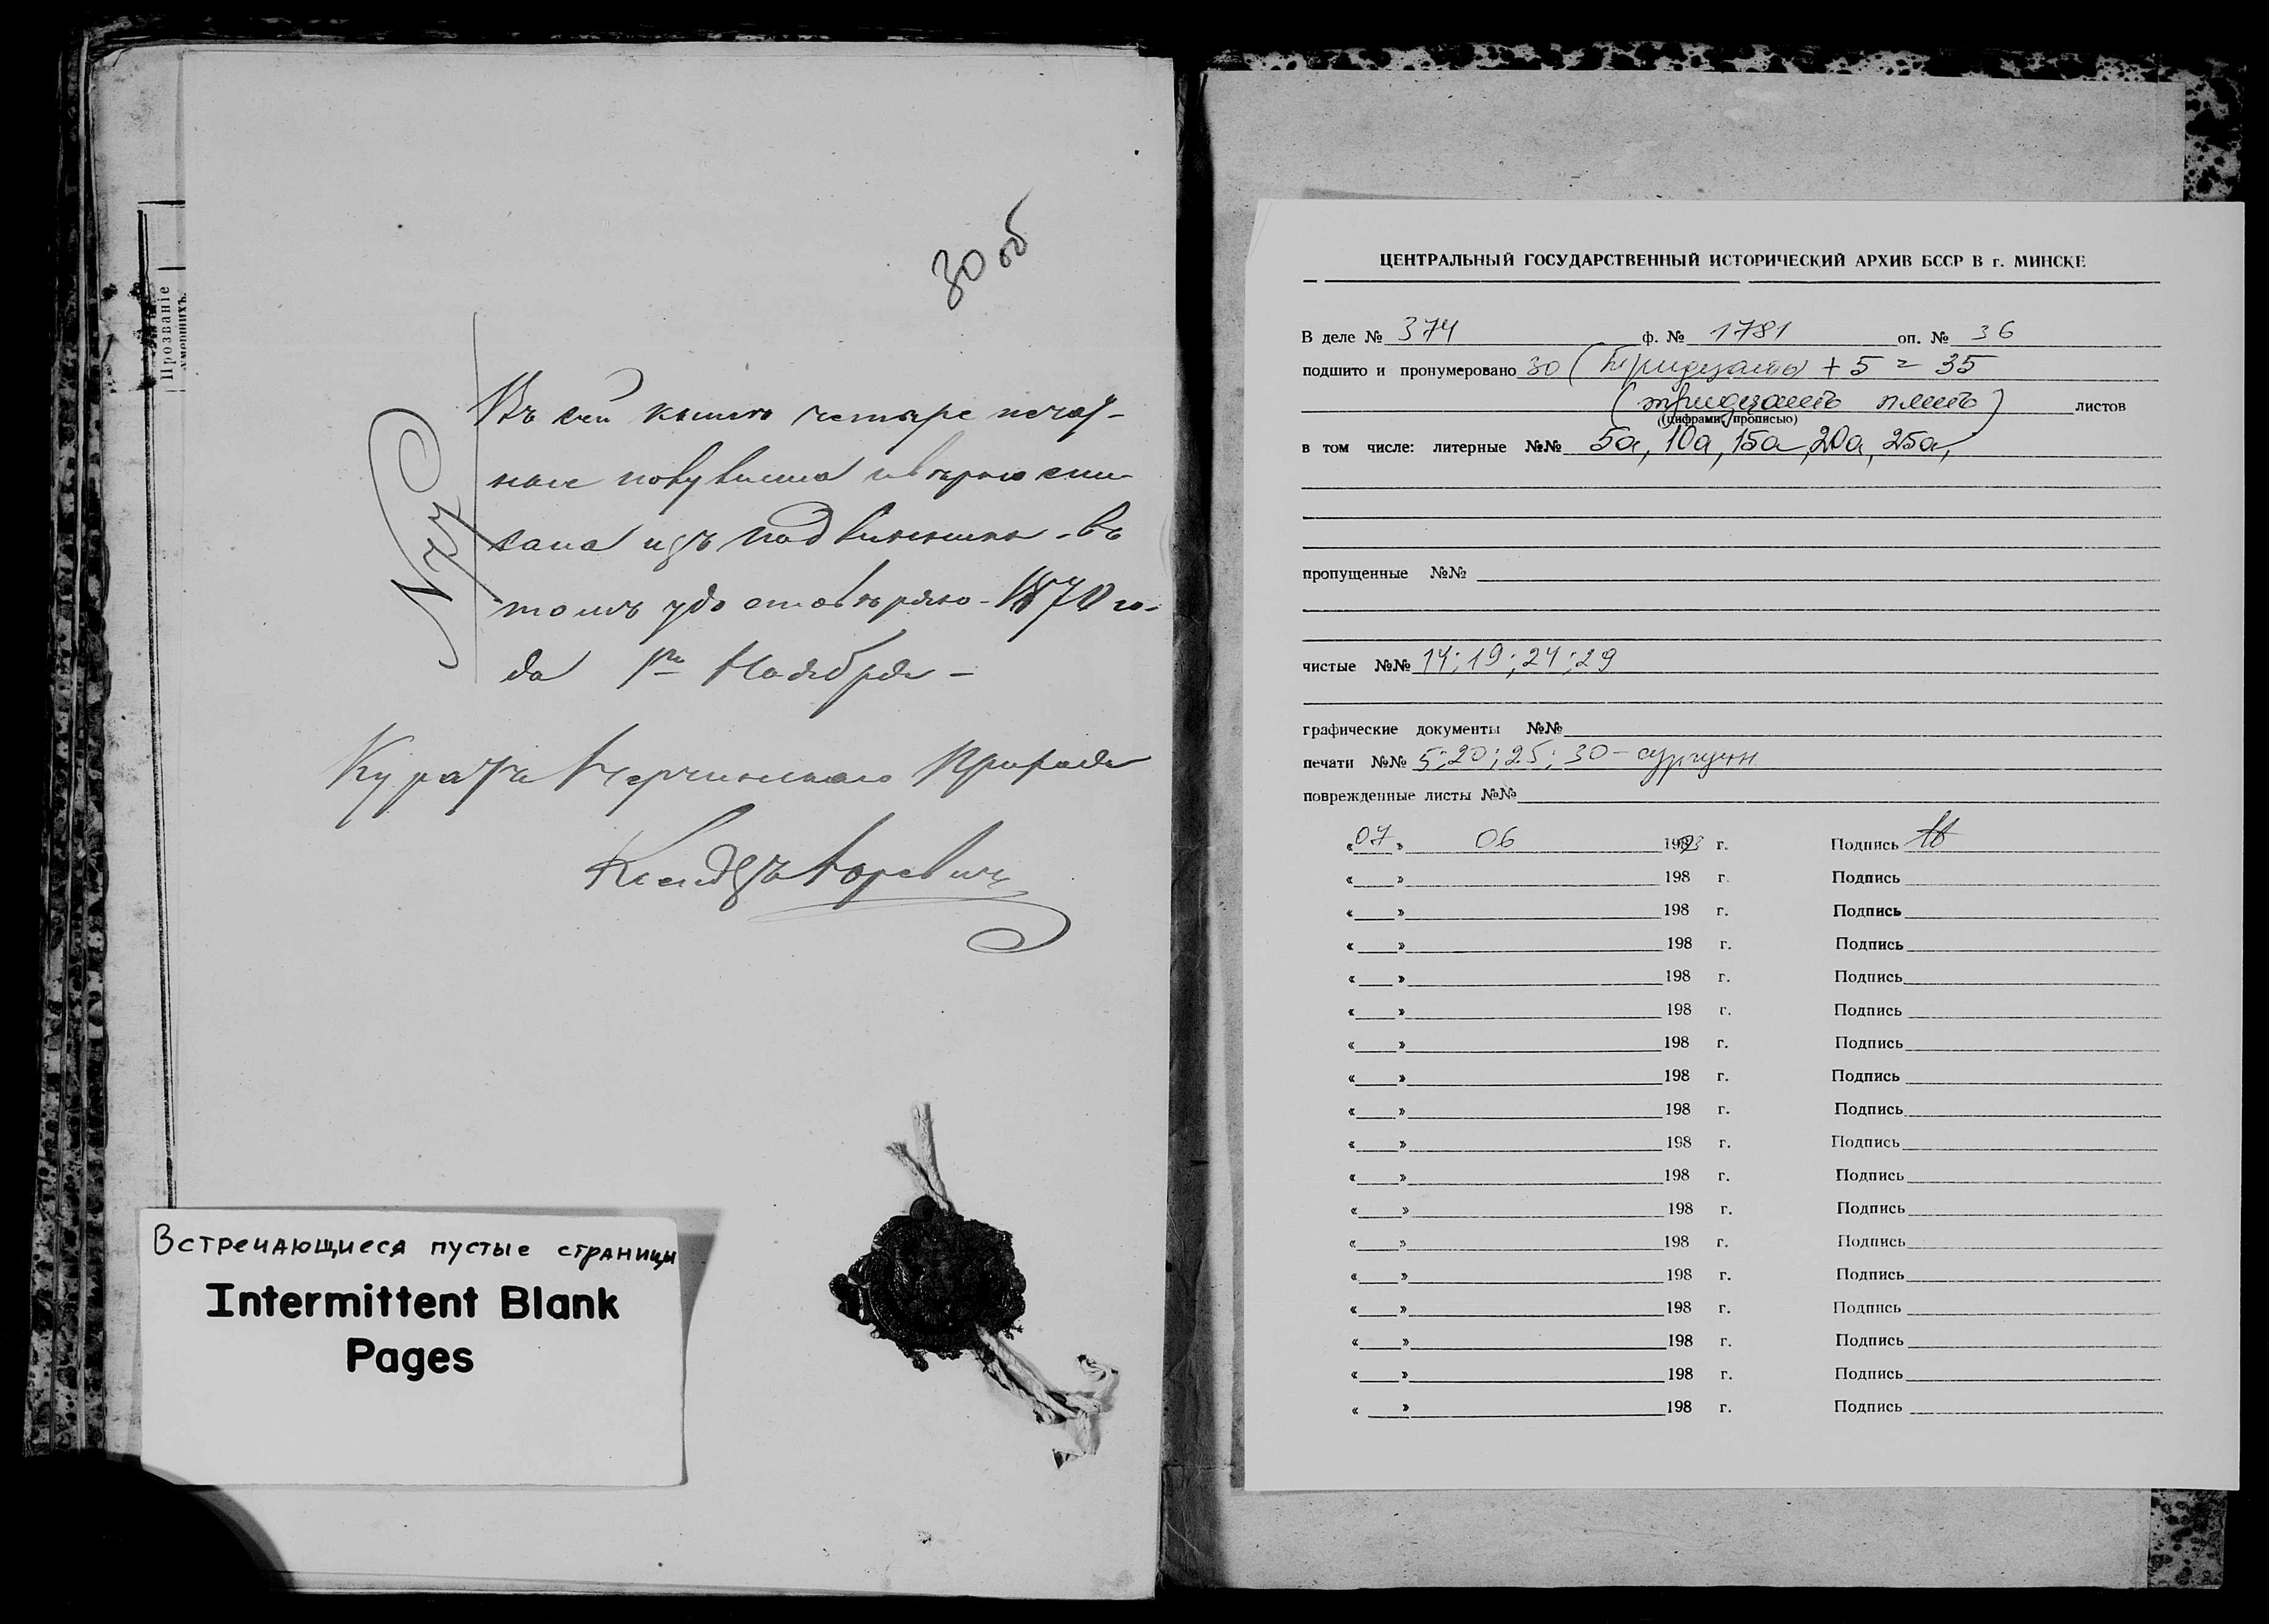 30 об
Прозваніе
умершихъ.
Въ сей книгѣ четыре печат-
ные
изъ под
томъ удостовѣряю 1870 го-
да 1го Ноября -
Куратъ Прихода
Ксендзъ
Встречающиеся пустые страницы
Intermittent Blank
Pages
ЦЕНТРАЛЬНЫЙ ГОСУДАРСТВЕННЫЙ ИСТОРИЧЕСКИЙ АРХИВ БССР В г. МИНСКЕ
В деле № 374 ф. № 1781 оп. № 36
подшито и пронумеровано 30 (тридцать) + 5 = 35
(тридцать пять) листов
(цифрами, прописью)
в том числе: литерные №№ 5а, 10а, 15а, 20а, 25а,
пропущенные №№
чистые №№ 14; 19; 24; 29
графические документы №№
печати №№ 5; 20; 25; 30 - сургучн.
поврежденные листы №№
«07» 06 г. Подпись
« » 198 г. Подпись
« » 198 г. Подпись
« » 198 г. Подпись
« » 198 г. Подпись
« » 198 г. Подпись
« » 198 г. Подпись
« » 198 г. Подпись
« » 198 г. Подпись
« » 198 г. Подпись
« » 198 г. Подпись
« » 198 г. Подпись
« » 198 г. Подпись
« » 198 г. Подпись
« » 198 г. Подпись
« » 198 г. Подпись
« » 198 г. Подпись
« » 198 г. Подпись